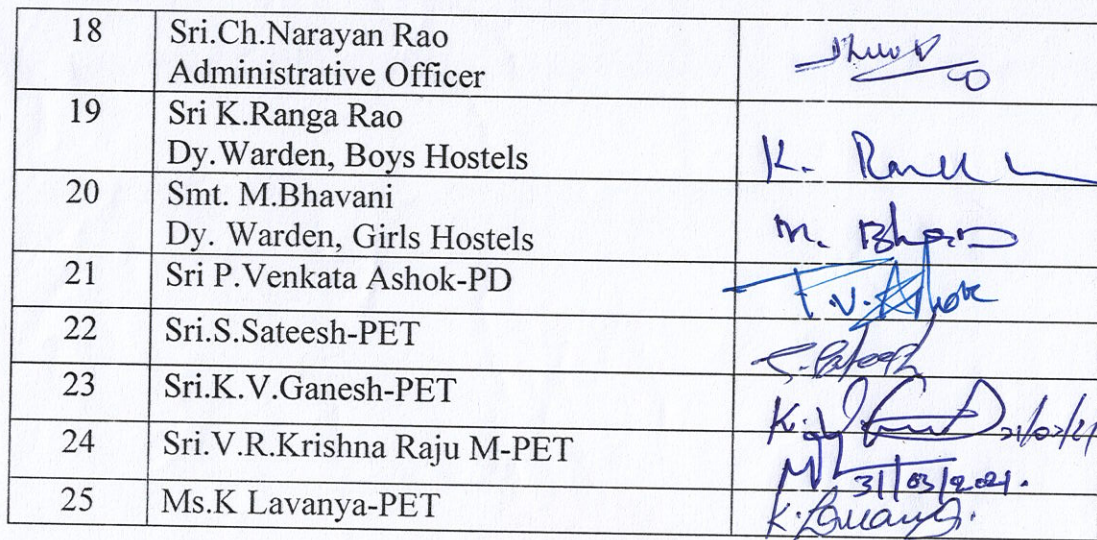 18 Sri.Ch.Narayan Rao
Administrative Officer
19 Sri K.Ranga Rao
Dy.Warden, Boys Hostels
K.
20 Smt. M.Bhavani
Dy. Warden, Girls Hostels
M.
21 Sri P.Venkata Ashok-PD
P.V.Ashok
22 Sri.S.Sateesh-PET
S.Sateesh
23 Sri.K.V.Ganesh-PET
24 Sri.V.R.Krishna Raju M-PET
31/03/2021.
25 Ms.K Lavanya-PET
K.Lavanya.